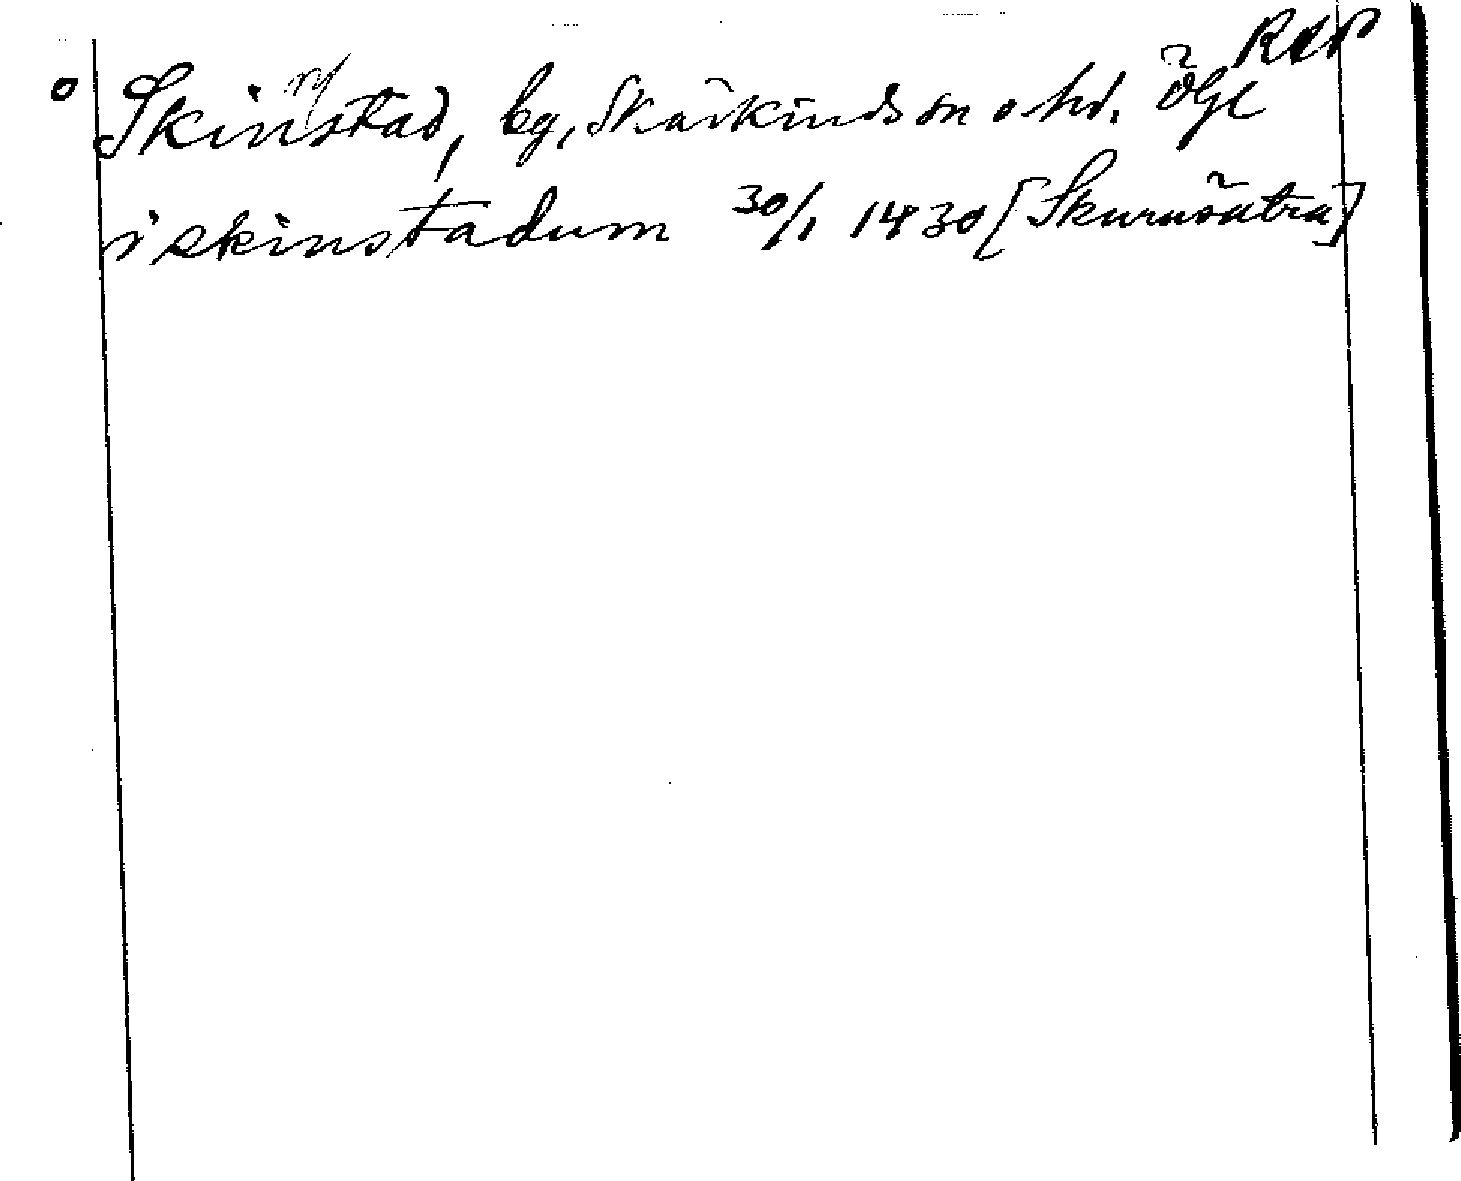 RAP
o Skinnstad, by, Skärkinds sn o hd. Ögl
i skinstadum 30/1 1430 [Skurusätra]